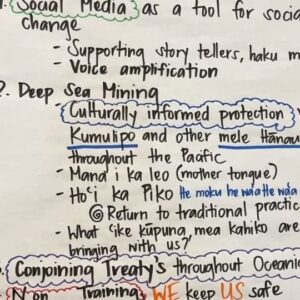 Social Media as a tool for social
change
- Supporting story tellers, haku m
- Voice amplification
2. Deep Sea Mining
- Culturally informed protection
Kumulipo and other mele Hānau
throughout the Pacific
- Mana i ka leo (mother tongue)
- Ho'i ka Piko He moku he wa'a he wa'a
@ Return to traditional practic
- What 'ike kūpuna, mea kahiko are
bringing with us?'
Conjoining Treaty's throughout Oceani
Non Training, WE keep US safe